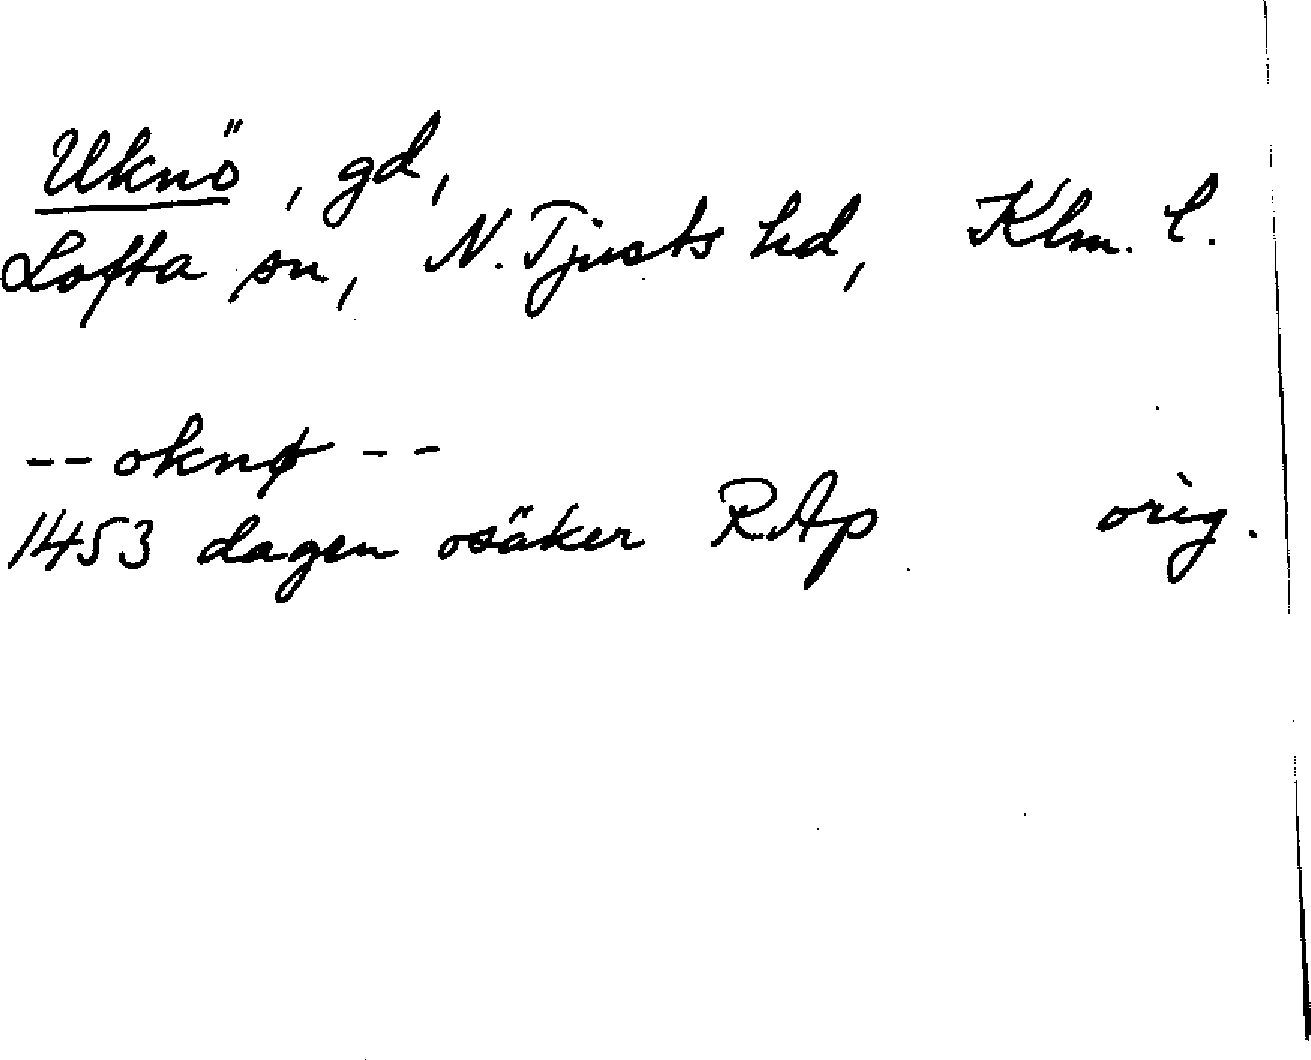 Uknö, gd,
Lofta sn, N. Tjusts hd, Klm. l.
-- oknø --
1453 dagen osäker RAp orig.